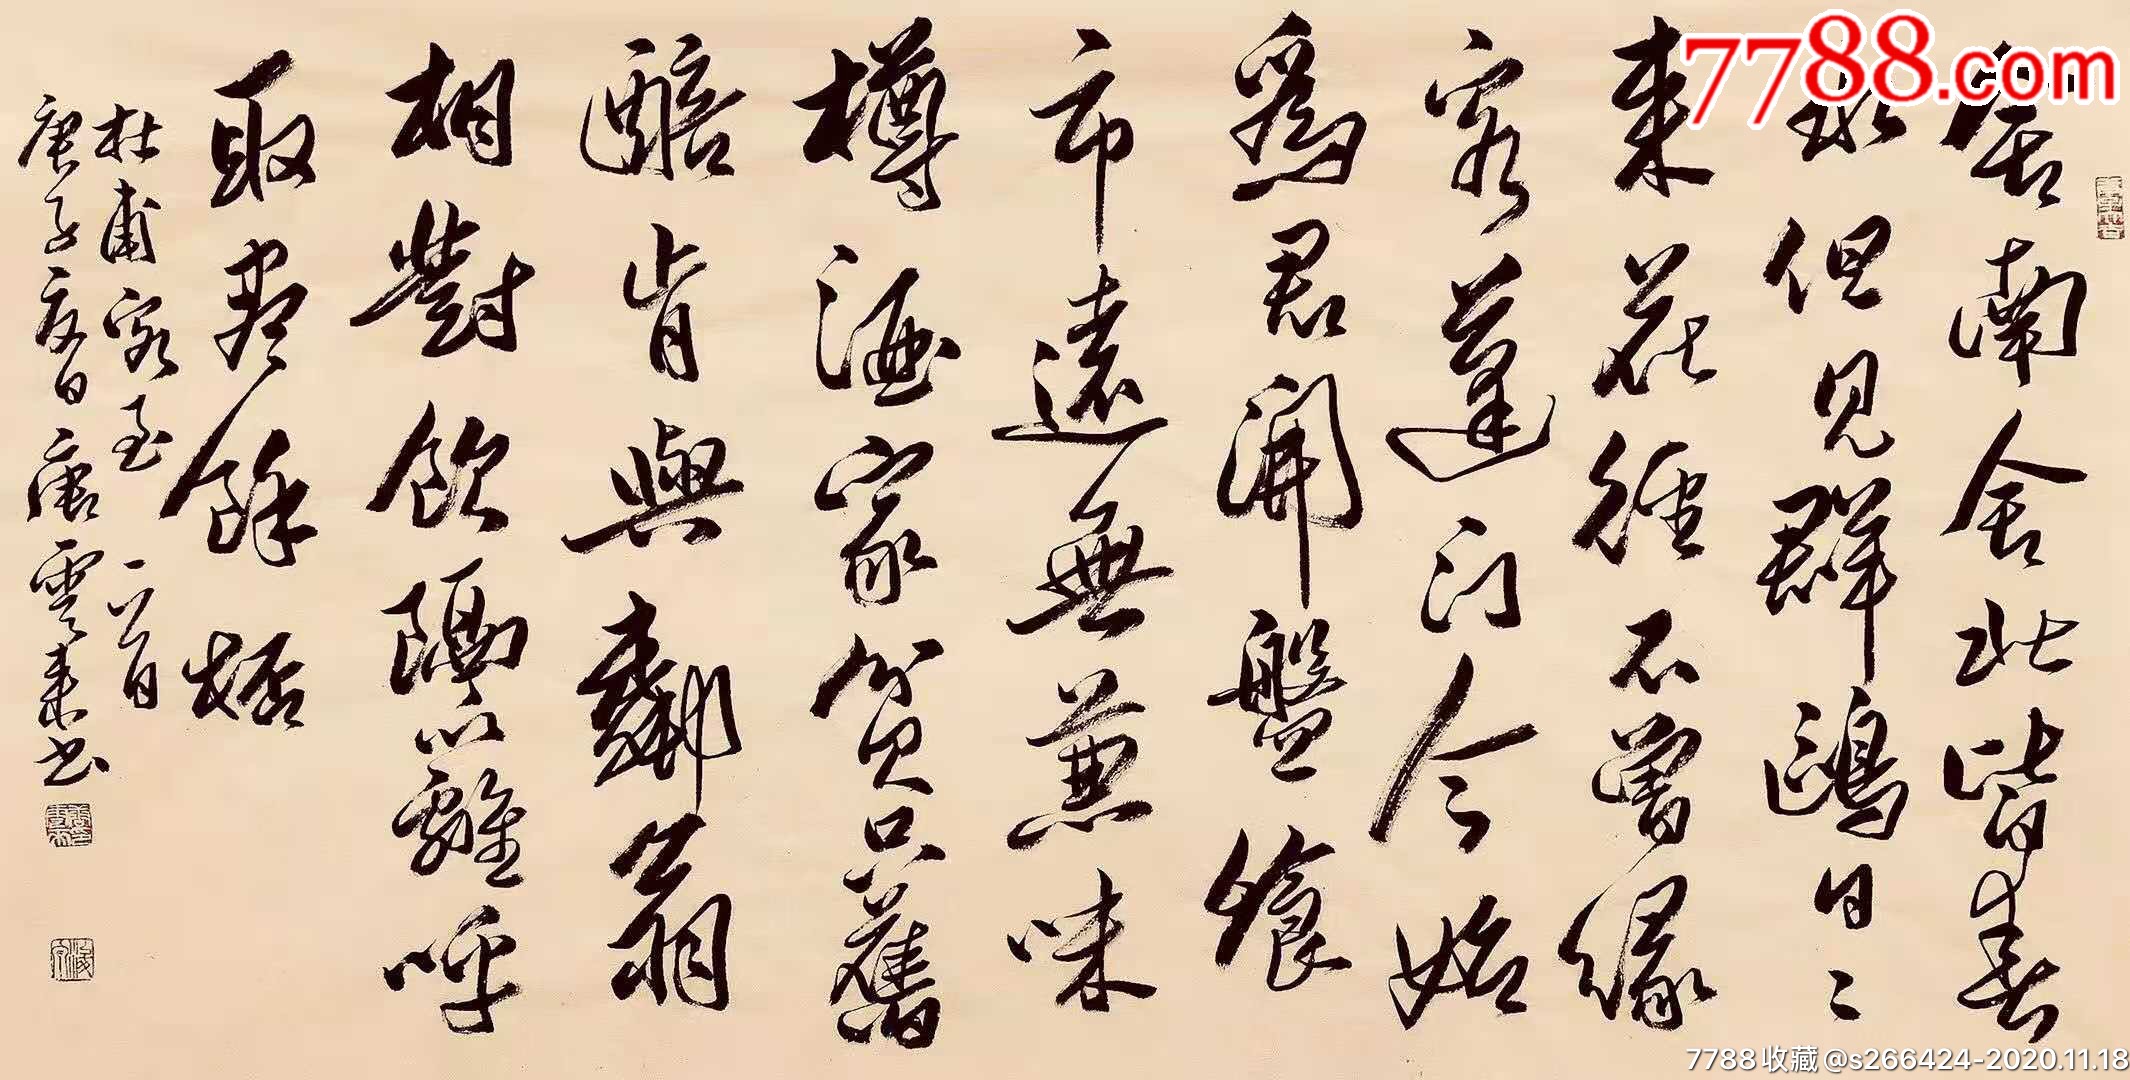 舍南舍北皆春
水但見群鷗日々
來花徑不曾緣
客蓬门今始
爲君開盤飧
市遠無兼味
樽酒家貧只舊
醅肯與鄰翁
相對飲隔籬呼
取盡餘桮
杜甫客至一首
庚子夏日唐雲來書
7788.com
7788收藏@s266424-2020.11.18